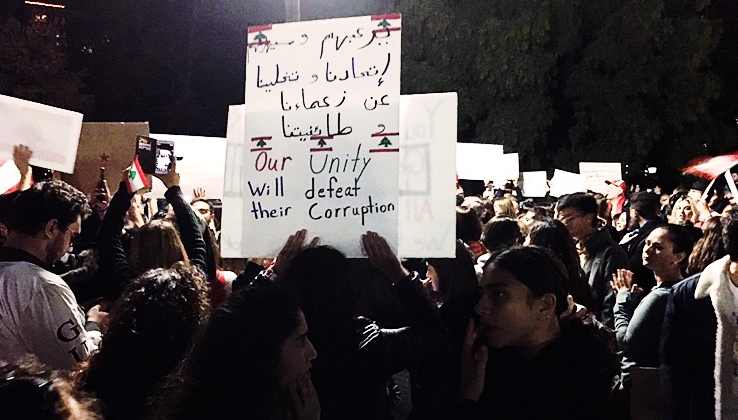 بيرعبهم وسيهزمهم
إتحادنا و تخلينا
عن زعماءنا
و طائفيتنا
Our Unity
Will defeat
their Corruption